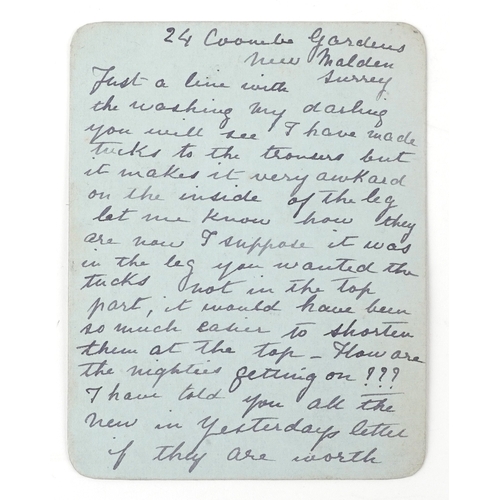 24 Coombe Gardens
New Malden
Surrey
Just a line with
the washing my darling
you will see I have made
tucks to the trousers but
it makes it very awkard
on the inside of the leg
let me know how they
are now I suppose it was
in the leg you wanted the
tucks not in the top
part, it would have been
so much easier to shorten
them at the top - How are
the nighties getting on ???
I have told you all the
new in yesterdays letter
if they are worth